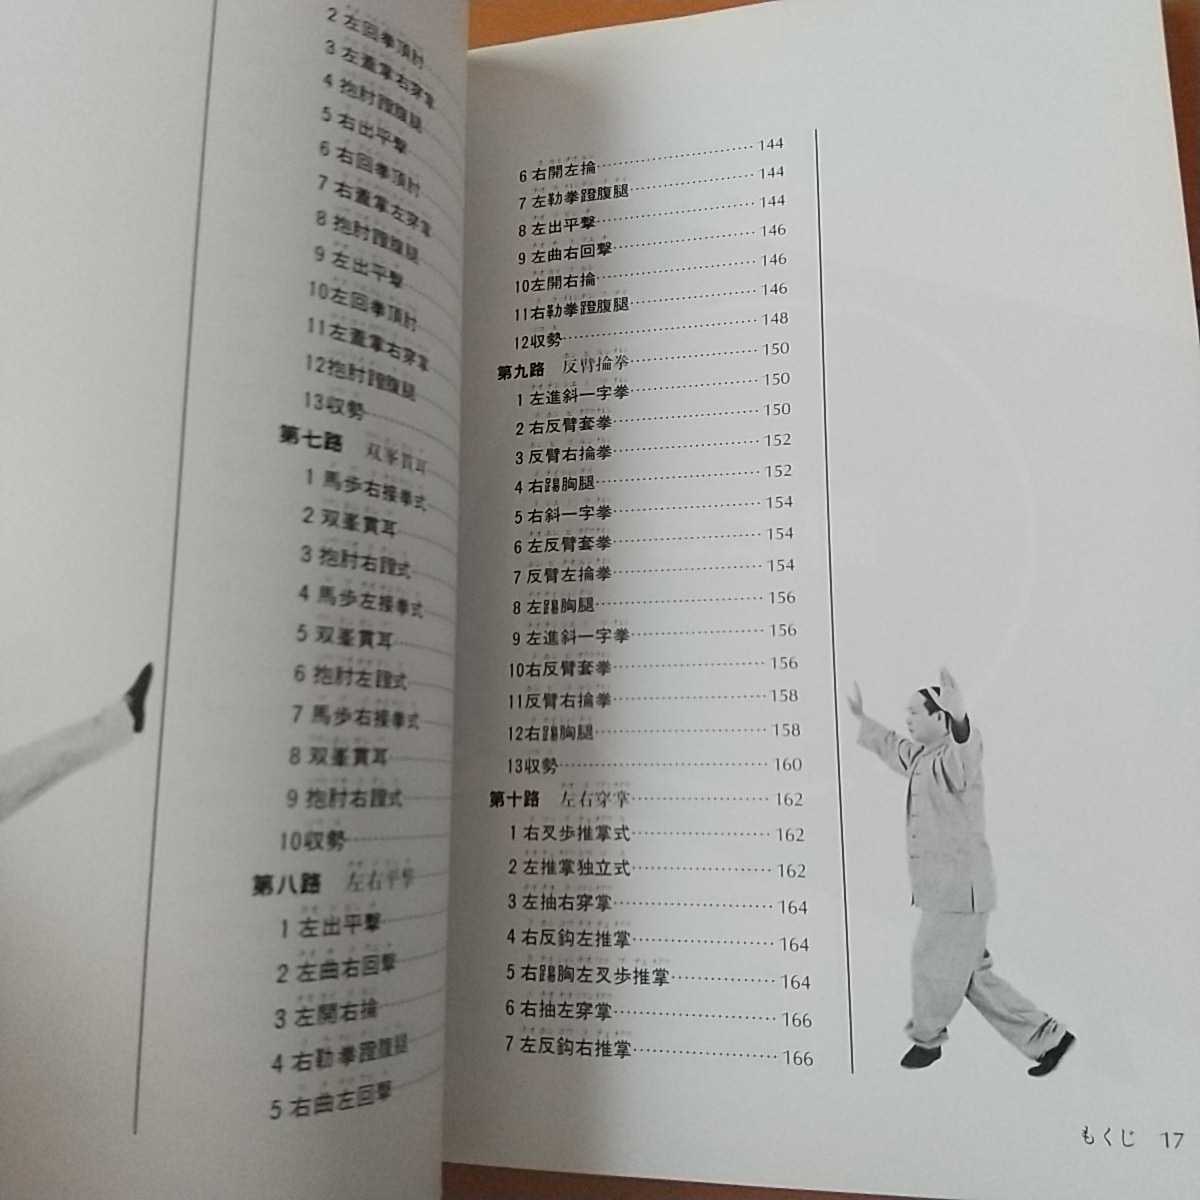 2 左回拳頂肘
3 左蓋掌右穿掌
4 抱肘蹬腹腿
5 右出平撃
6 右回拳頂肘
7 右蓋掌左穿掌
8 抱肘蹬腹腿
9 左出平撃
10 左回拳頂肘
11 左蓋掌右穿掌
12 抱肘蹬腹腿
13 収勢
第七路 双峯貫耳
1 馬歩右接拳式
2 双峯貫耳
3 抱肘右蹬式
4 馬歩左接拳式
5 双峯貫耳
6 抱肘左蹬式
7 馬歩右接拳式
8 双峯貫耳
9 抱肘右蹬式
10 収勢
第八路 左右平撃
1 左出平撃
2 左曲右回撃
3 左開右掄
4 右勒拳蹬腹腿
5 右曲左回撃
6 右開左掄 144
7 左勒拳蹬腹腿 144
8 左出平撃 144
9 左曲右回撃 146
10 左開右掄 146
11 右勒拳蹬腹腿 146
12 収勢 148
第九路 反臂掄拳 150
1 左進斜一字拳 150
2 右反臂套拳 150
3 反臂右掄拳 152
4 右踢胸腿 152
5 右斜一字拳 154
6 左反臂套拳 154
7 反臂左掄拳 154
8 左踢胸腿 156
9 左進斜一字拳 156
10 右反臂套拳 156
11 反臂右掄拳 158
12 右踢胸腿 158
13 収勢 160
第十路 左右穿掌 162
1 右叉歩推掌式 162
2 左推掌独立式 162
3 左抽右穿掌 164
4 右反鈎左推掌 164
5 右踢胸左叉歩推掌 164
6 右抽左穿掌 166
7 左反鈎右推掌 166
もくじ 17